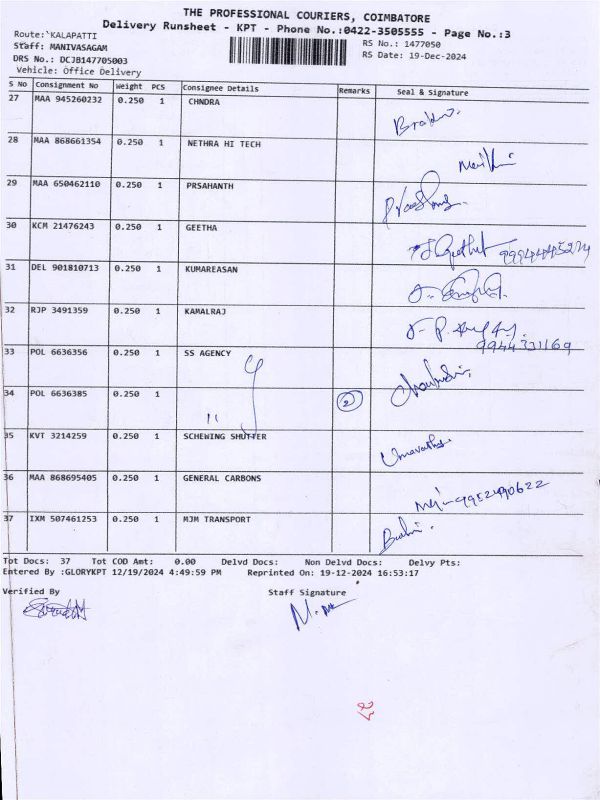 THE PROFESSIONAL COURIERS, COIMBATORE
Delivery Runsheet - KPT - Phone No.:0422-3505555 - Page No.:3
Route: KALAPATTI
Staff: MANIVASAGAM
DRS No.: DCJB147705003
Vehicle: Office Delivery
RS No.: 1477050
RS Date: 19-Dec-2024
S No Consignment No Weight PCS Consignee Details Remarks Seal & Signature
27 MAA 945260232 0.250 1 CHNDRA
28 MAA 868661354 0.250 1 NETHRA HI TECH
29 MAA 650462110 0.250 1 PRSAHANTH
30 KCM 21476243 0.250 1 GEETHA
31 DEL 901810713 0.250 1 KUMAREASAN
32 RJP 3491359 0.250 1 KAMALRAJ
9944331169
33 POL 6636356 0.250 1 SS AGENCY
34 POL 6636385 0.250 1 " 2
35 KVT 3214259 0.250 1 SCHEWING SHUTTER
36 MAA 868695405 0.250 1 GENERAL CARBONS
37 IXM 507461253 0.250 1 MJM TRANSPORT
Tot Docs: 37 Tot COD Amt: 0.00 Delvd Docs: Non Delvd Docs: Delvy Pts:
Entered By :GLORYKPT 12/19/2024 4:49:59 PM Reprinted On: 19-12-2024 16:53:17
Verified By Staff Signature